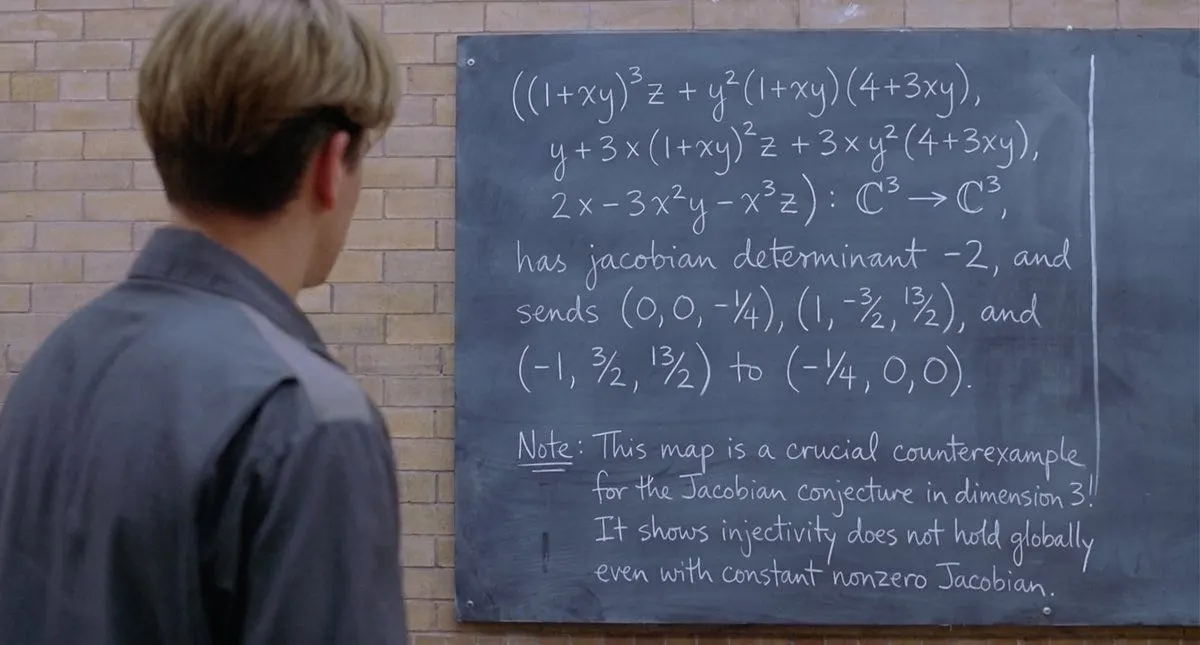 ((1+xy)³z + y²(1+xy)(4+3xy),
y+3x(1+xy)²z + 3xy²(4+3xy),
2x-3x²y-x³z): ℂ³→ℂ³,
has jacobian determinant -2, and
sends (0,0,-1/4), (1,-3/2, 13/2), and
(-1, 3/2, 13/2) to (-1/4,0,0).
Note: This map is a crucial counterexample
for the Jacobian conjecture in dimension 3!
It shows injectivity does not hold globally
even with constant nonzero Jacobian.